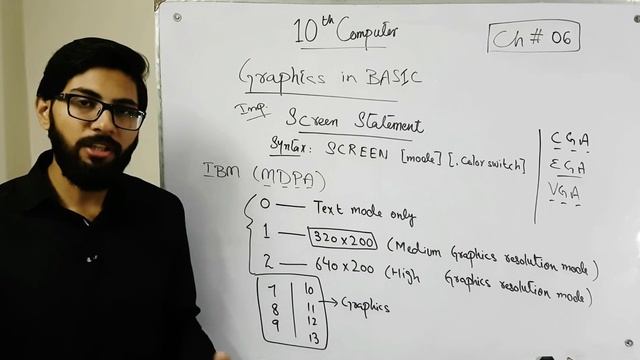 10th Computer
Ch # 06
Graphics in BASIC
Imp:
Screen Statement
Syntax: SCREEN [mode] [,Color switch]
CGA
EGA
VGA
IBM (MDPA)
0 — Text mode only
1 — 320x200 (Medium Graphics resolution mode)
2 — 640x200 (High Graphics resolution mode)
7 10
8 11 → Graphics
9 12
13